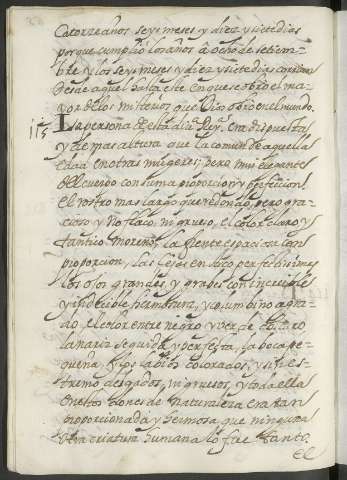 Catorze años seys meses, y diez, y siete dias
porque cumplio los años a ocho de setiem-
bre y los seys meses y diez y siete dias corrian
desde aquel hasta este en que se obro el ma
yor de los misterios que Dios obro en el mundo.
115 La persona desta diua Reyna era dispuesta
y de mas altura que la comun de aquella
edad en otras mugeres; pero mui elegantes
del cuerpo con suma proporcion y perfeccion.
el rostro mas largo que redondo, pero gra-
cioso y no flaco, ni grueso, el color claro y
tantico moreno, la frente espaciosa con
proporcion, las cejas en arco perfectisimas
los ojos grandes, y graves con increible
y indecible hermosura, y columbino agra-
do, el color entre negro y verde obscuro,
la nariz seguida y perfecta, la boca pe-
queña, y los labios colorados, y sin es-
tremo delgados, ni gruesos, y toda ella
en estos dones de naturaleza era tan
proporcionada y hermosa que ninguna
otra criatura humana lo fue tanto.
El